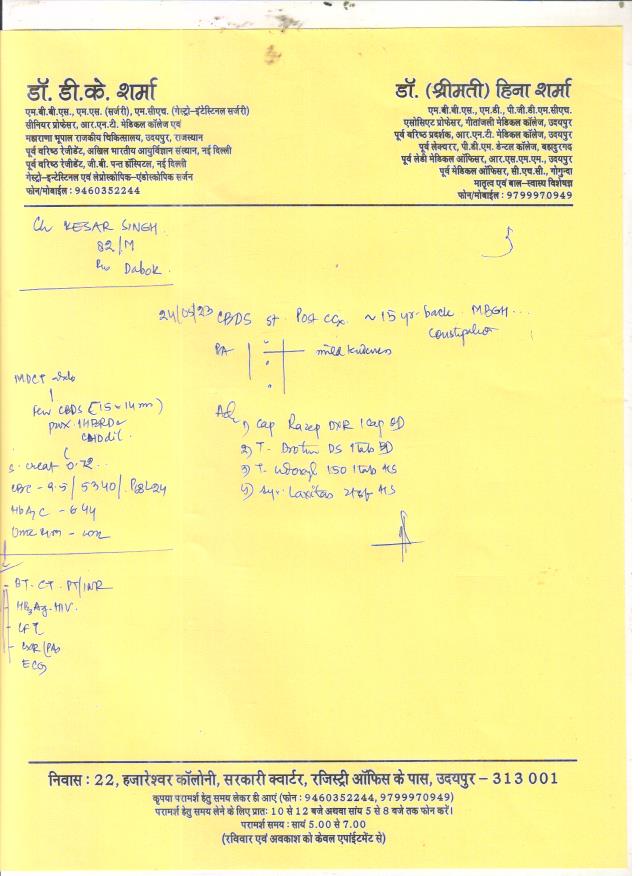 डॉ. डी.के. शर्मा
एम.बी.बी.एस., एम.एस. (सर्जरी), एम.सीएच. (गेस्ट्रो-इंटेस्टिनल सर्जरी)
सीनियर प्रोफेसर, आर.एन.टी. मेडिकल कॉलेज एवं
महाराणा भूपाल राजकीय चिकित्सालय, उदयपुर, राजस्थान
पूर्व वरिष्ठ रेजीडेंट, अखिल भारतीय आयुर्विज्ञान संस्थान, नई दिल्ली
पूर्व वरिष्ठ रेजीडेंट, जी.बी. पन्त हॉस्पिटल, नई दिल्ली
गेस्ट्रो-इन्टेस्टिनल एवं लेप्रोस्कोपिक-एंडोस्कोपिक सर्जन
फोन/मोबाईल : 9460352244
डॉ. (श्रीमती) हिना शर्मा
एम.बी.बी.एस., एम.डी., पी.जी.डी.एम.सीएच.
एसोसिएट प्रोफेसर, गीतांजली मेडिकल कॉलेज, उदयपुर
पूर्व वरिष्ठ प्रदर्शक, आर.एन.टी. मेडिकल कॉलेज, उदयपुर
पूर्व लेक्चरर, पी.डी.एम. डेन्टल कॉलेज, बहादुरगढ़
पूर्व लेडी मेडिकल ऑफिसर, आर.एस.एम.एम., उदयपुर
पूर्व मेडिकल ऑफिसर, सी.एच.सी., गोगुन्दा
मातृत्व एवं बाल-स्वास्थ्य विशेषज्ञ
फोन/मोबाईल : 9799970949
Ch KESAR SINGH
82/M
R/o Dabok.
24/05/23 CBDS st. Post CCx. ~15 yr. back. MBGH...
Constipation
PA
MDCT
Few CBDS (15x14mm)
S. creat 0.72..
CBC - 9.5/5340/
HbA1C - 6.44
Adv
1) Cap Razep DXR 1 Cap OD
2) T. DS 1 tab
3) T. 150 1 tab HS
4) Syr. Laxitas HS
- BT. CT. PT/INR
- HBsAg. HIV.
- LFT
- CXR/PA
ECG
निवास : 22, हजारेश्वर कॉलोनी, सरकारी क्वार्टर, रजिस्ट्री ऑफिस के पास, उदयपुर – 313 001
कृपया परामर्श हेतु समय लेकर ही आएं (फोन : 9460352244, 9799970949)
परामर्श हेतु समय लेने के लिए प्रातः 10 से 12 बजे अथवा सांय 5 से 8 बजे तक फोन करें।
परामर्श समय : सायं 5.00 से 7.00
(रविवार एवं अवकाश को केवल एपॉईंटमेंट से)